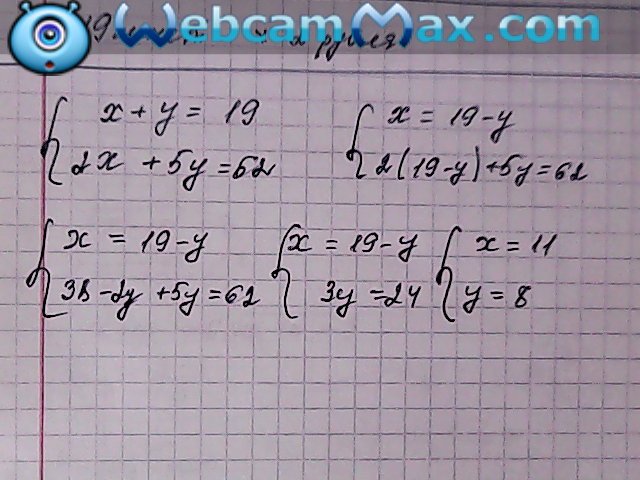 WebcamMax.com
19
рубля
{ x + y = 19
{ 2x + 5y = 62
{ x = 19 - y
{ 2(19 - y) + 5y = 62
{ x = 19 - y
{ 38 - 2y + 5y = 62
{ x = 19 - y
{ 3y = 24
{ x = 11
{ y = 8